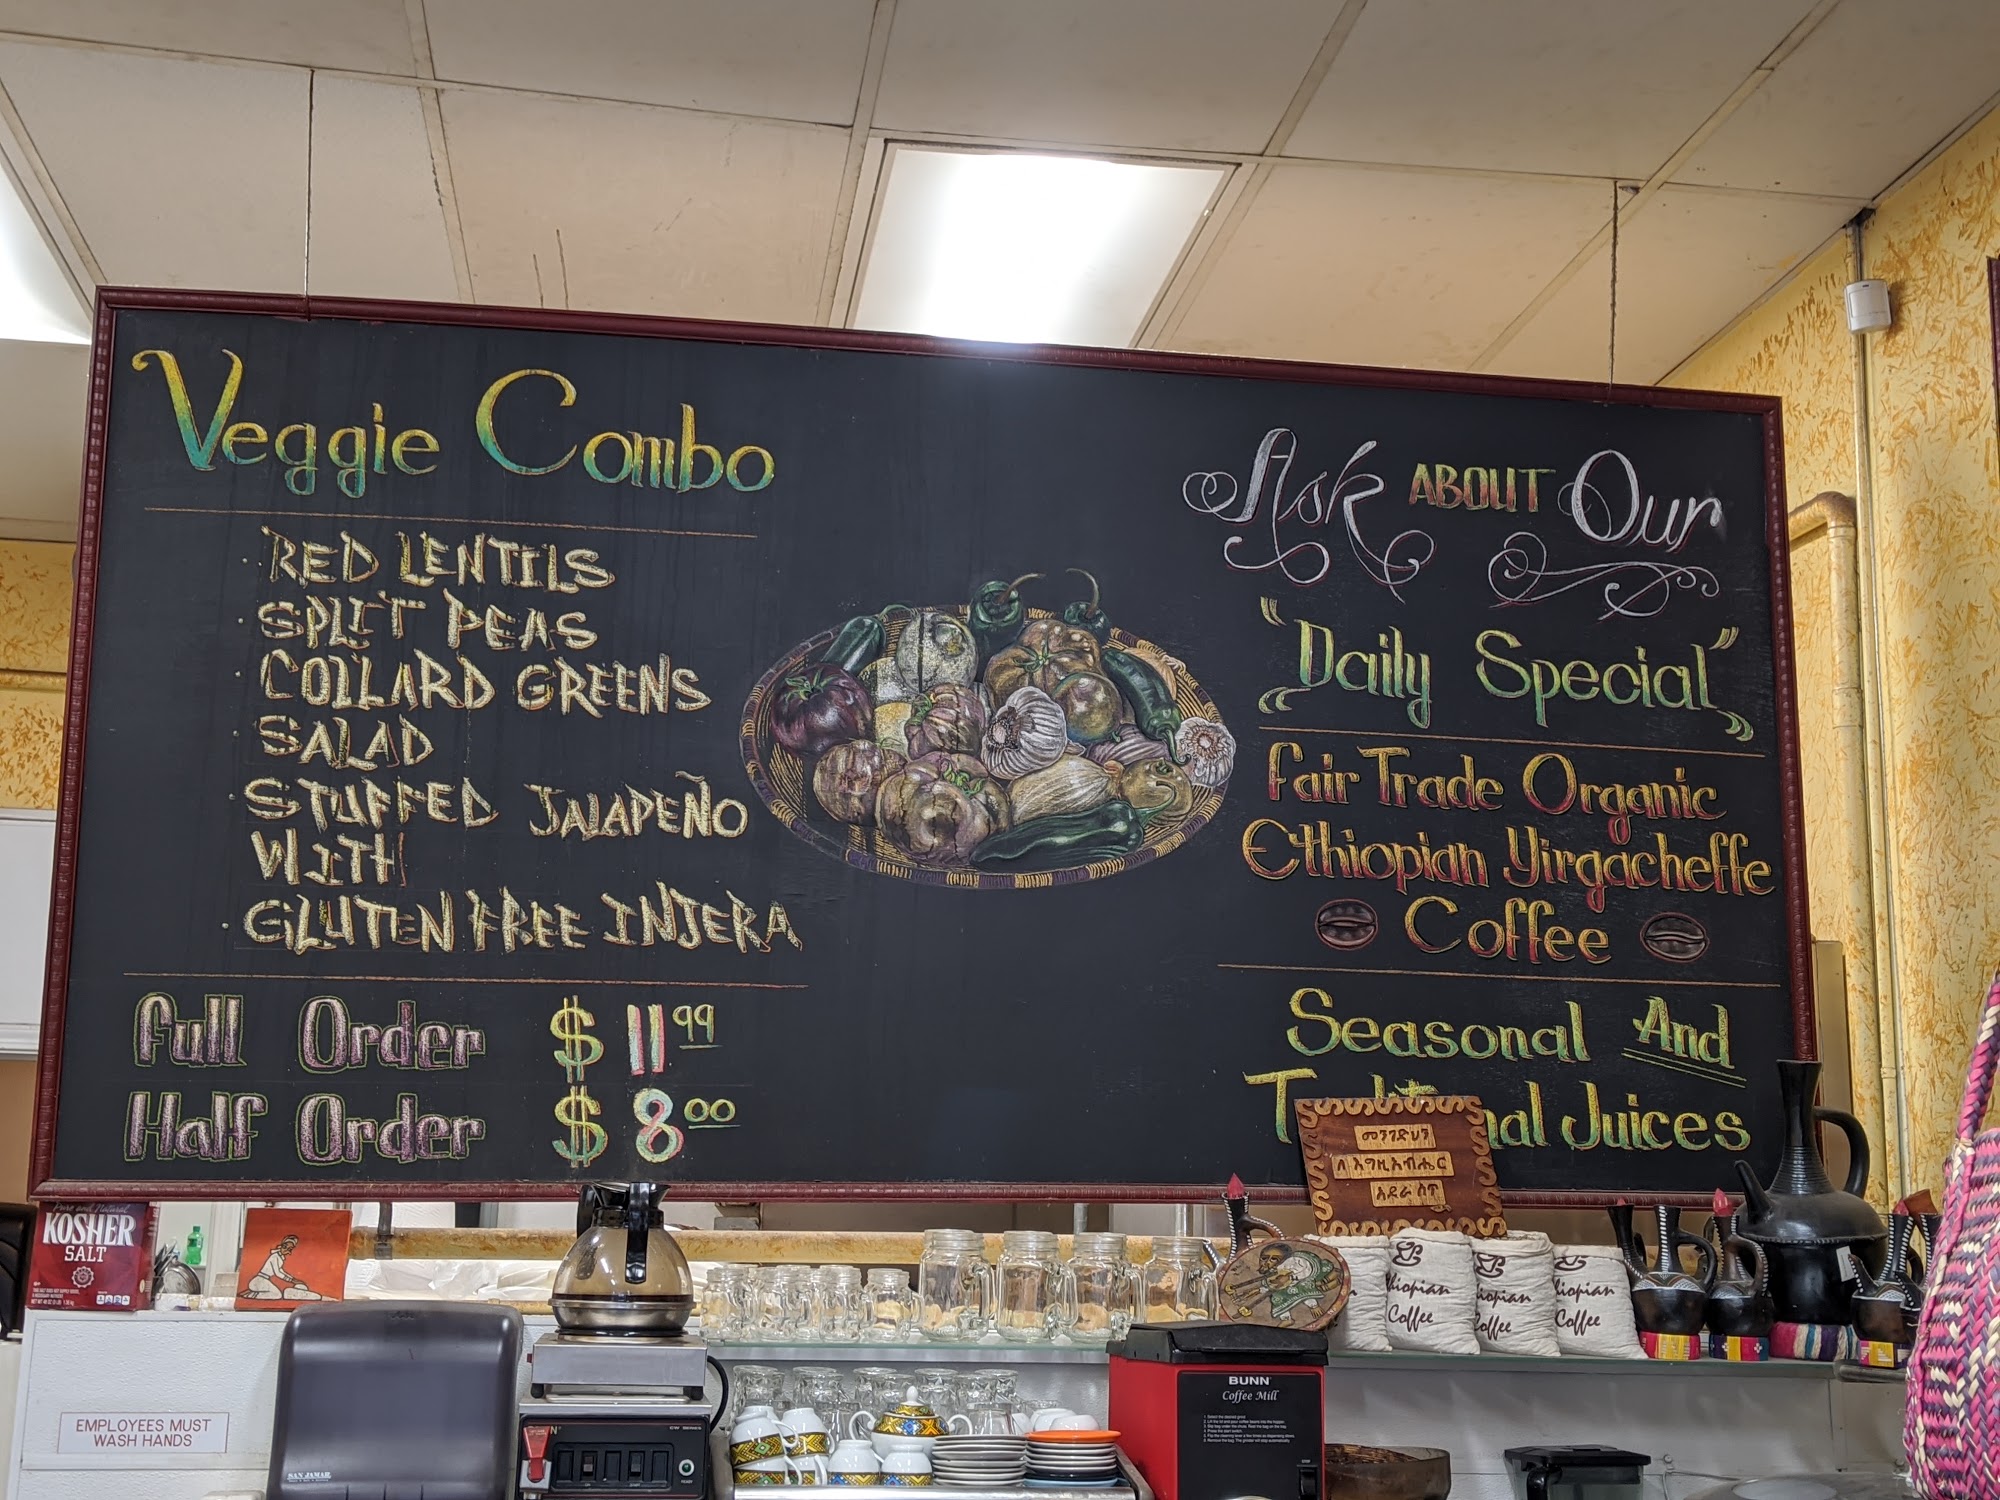 Veggie Combo
· RED LENTILS
· SPLIT PEAS
· COLLARD GREENS
· SALAD
· STUFFED JALAPEÑO
WITH
· GLUTEN FREE INJERA
Full Order $ 11 99
Half Order $ 8 00
Ask ABOUT Our
"Daily Special"
Fair Trade Organic
Ethiopian Yirgacheffe
Coffee
Seasonal And
Juices
መንገድህን
ለ እግዚአብሔር
አደራ ስጥ
Pure and Natural
KOSHER
SALT
EMPLOYEES MUST
WASH HANDS
SAN JAMAR
BUNN
Coffee Mill
Coffee
Coffee
Coffee